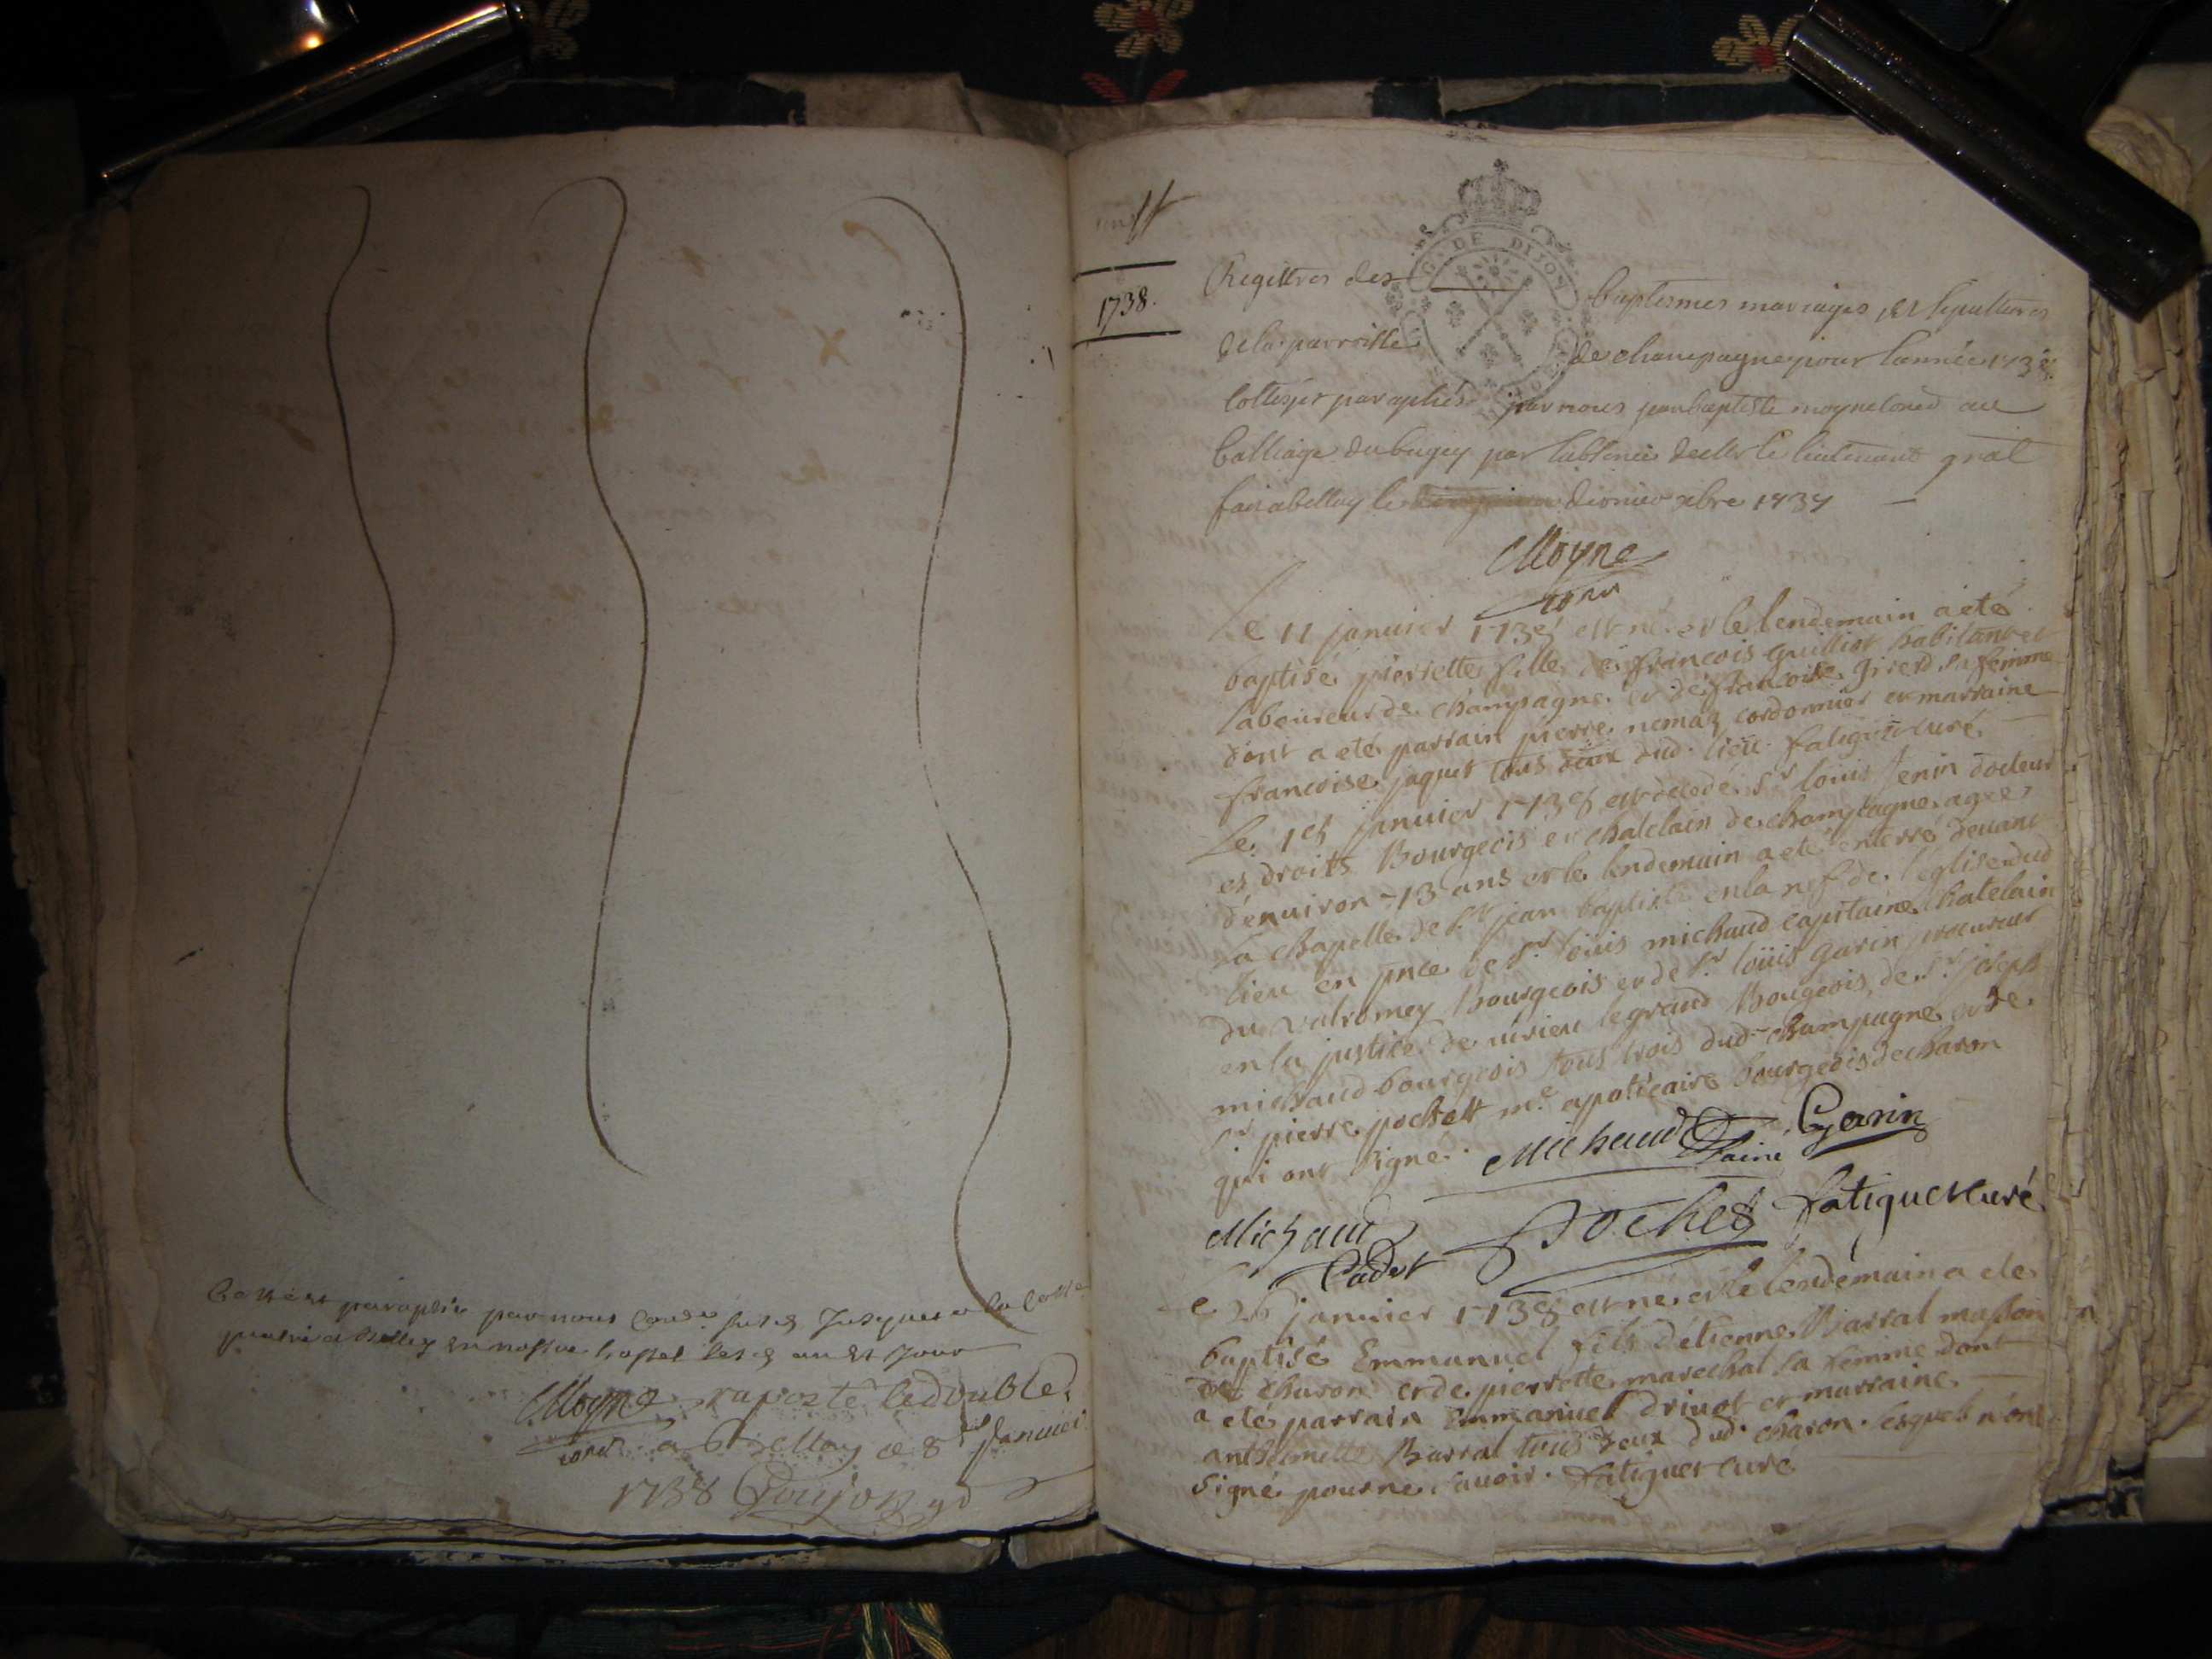 paraphé par nous jusques
Moyne raporté le double
a Belley ce 8 Janvier
1738 Goujon
1738.
G. DE DIJON
Registres des baptesmes mariages et sepultures
de la parroisse de champagne pour l'année 1738
cottés et paraphés par nous jean baptiste moyne au
balliage du bugey par l'absence de le lieutenant gnal
fait a belley le dernier xbre 1737
Moyne
Le 11 janvier 1738 est né et le lendemain a eté
baptisé pierrette fille de françois guilliot habitant et
laboureur de champagne et de françoise grierd sa femme
dont a eté parrain pierre nemaz cordonnier et marraine
francoise jaquet tous deux dud. lieu. fatiguet curé.
Le 18 janvier 1738 est decedé Sr louis Jenin docteur
es droits Bourgeois et chatelain de champagne agé
d'environ 73 ans et le lendemain a eté enterré devant
la chapelle de St jean baptiste en la nef de l'eglise dud
lieu en pnce de Sr loüis michaud capitaine chatelain
du valromey bourgeois et de Sr loüis Garin procureur
en la justice de virieu le grand Bougeois, de Sr joseph
michaud bourgeois tous trois dud champagne et de
Sr pierre pochett me apoticaire bourgeois de charon
qui ont signé. Michaud l'ainé Garin
Michaud Cadet Pochet fatiguet curé
Le 26 janvier 1738 est né et le lendemain a eté
baptisé Emmanuel fils d'étienne Barral masson
de charon et de pierrette marechal sa femme dont
a eté parrain Emmanuel drivet et marraine
anthelmette Barral tous deux dud. charon. lesquels n'ont
signé pour ne savoir. fatiguet curé